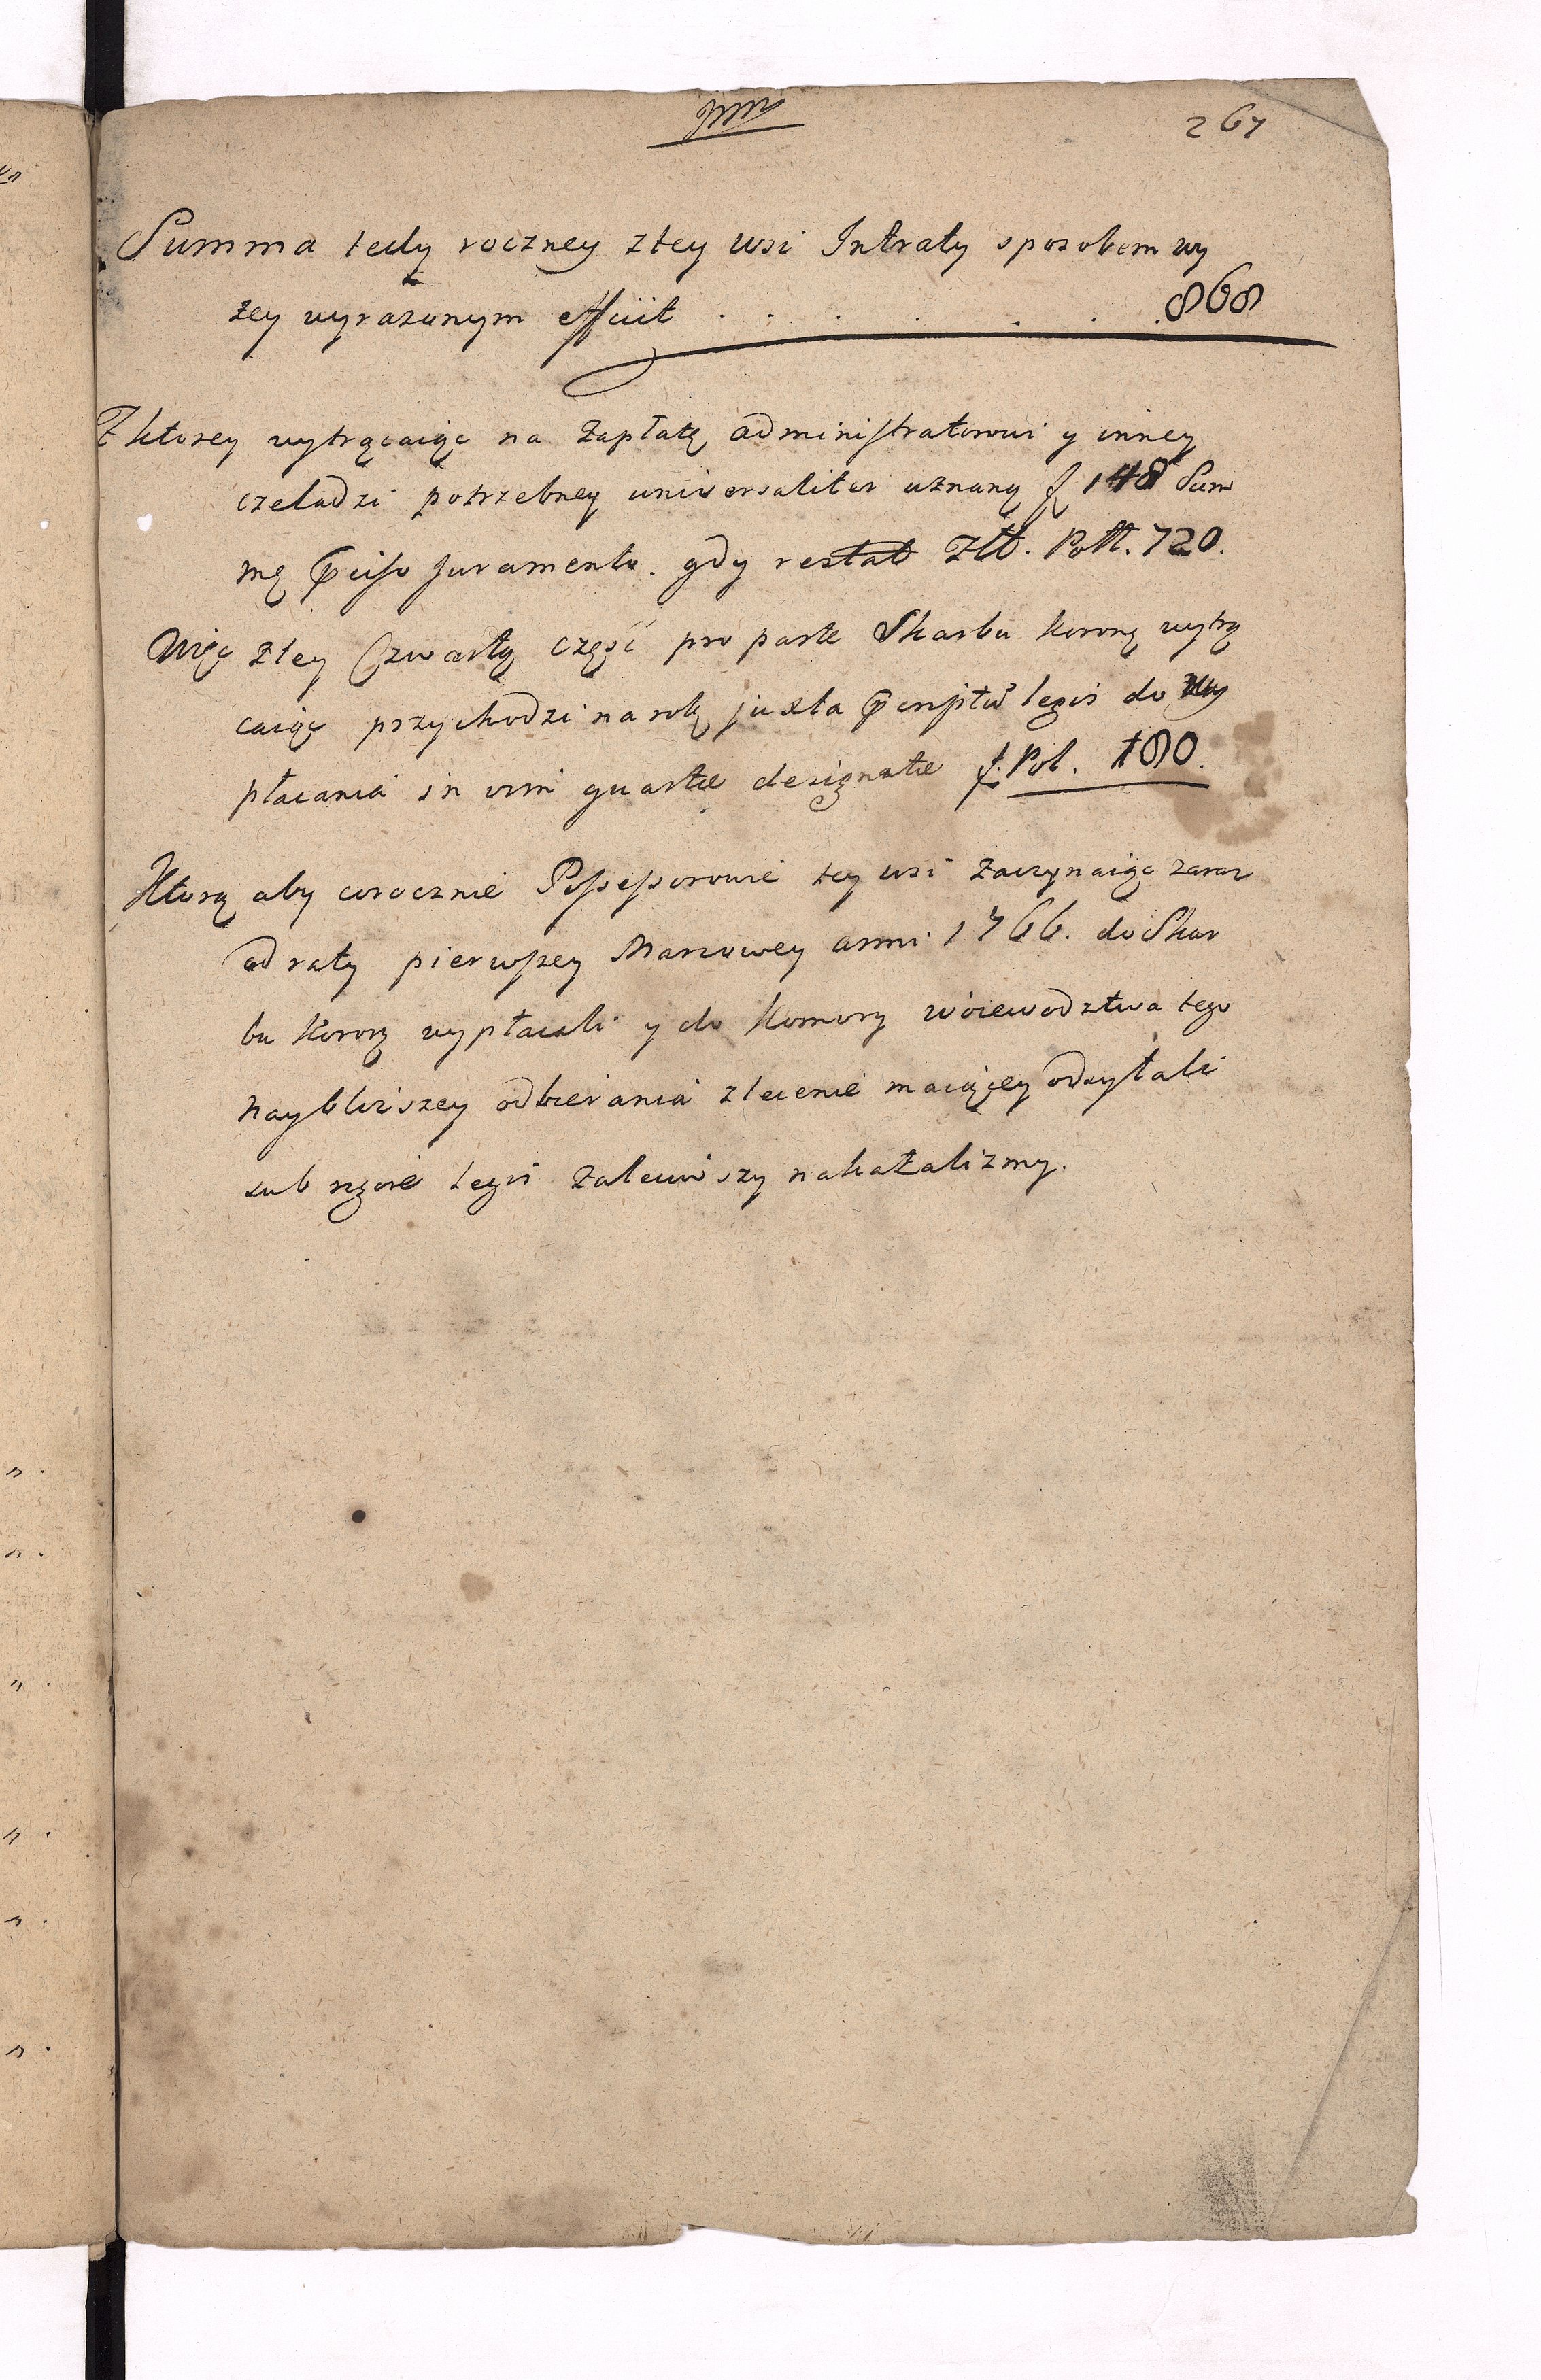 267
Summa tedy roczney z tey wsi Intraty sposobem wy
zey wyrazonym efficit . . . . . . . 868
Z ktorey wytrącaiąc na zapłatę administratorowi y inney
czeladzi potrzebney universaliter uznaną f 148 Sum
mę juramento. gdy restat Złł. Poll. 720.
Więc z tey Czwartą część pro parte Skarbu Koronỹ wytrą
caiąc przychodzi na rok juxta legis do Wy
płacania in vim quartæ designatæ f. Pol. 180.
Ktorą aby corocznie Possessorowie tey wsi zaczynaiąc zaraz
od raty pierwszey Marcowey anni 1766. do Skar
bu Koronỹ wypłacali y do Komory woiewodztwa tego
naybliższey odbierania zlecenie maiącey odsyłali
sub rigore legis zalecaiszy nakazalizmy.